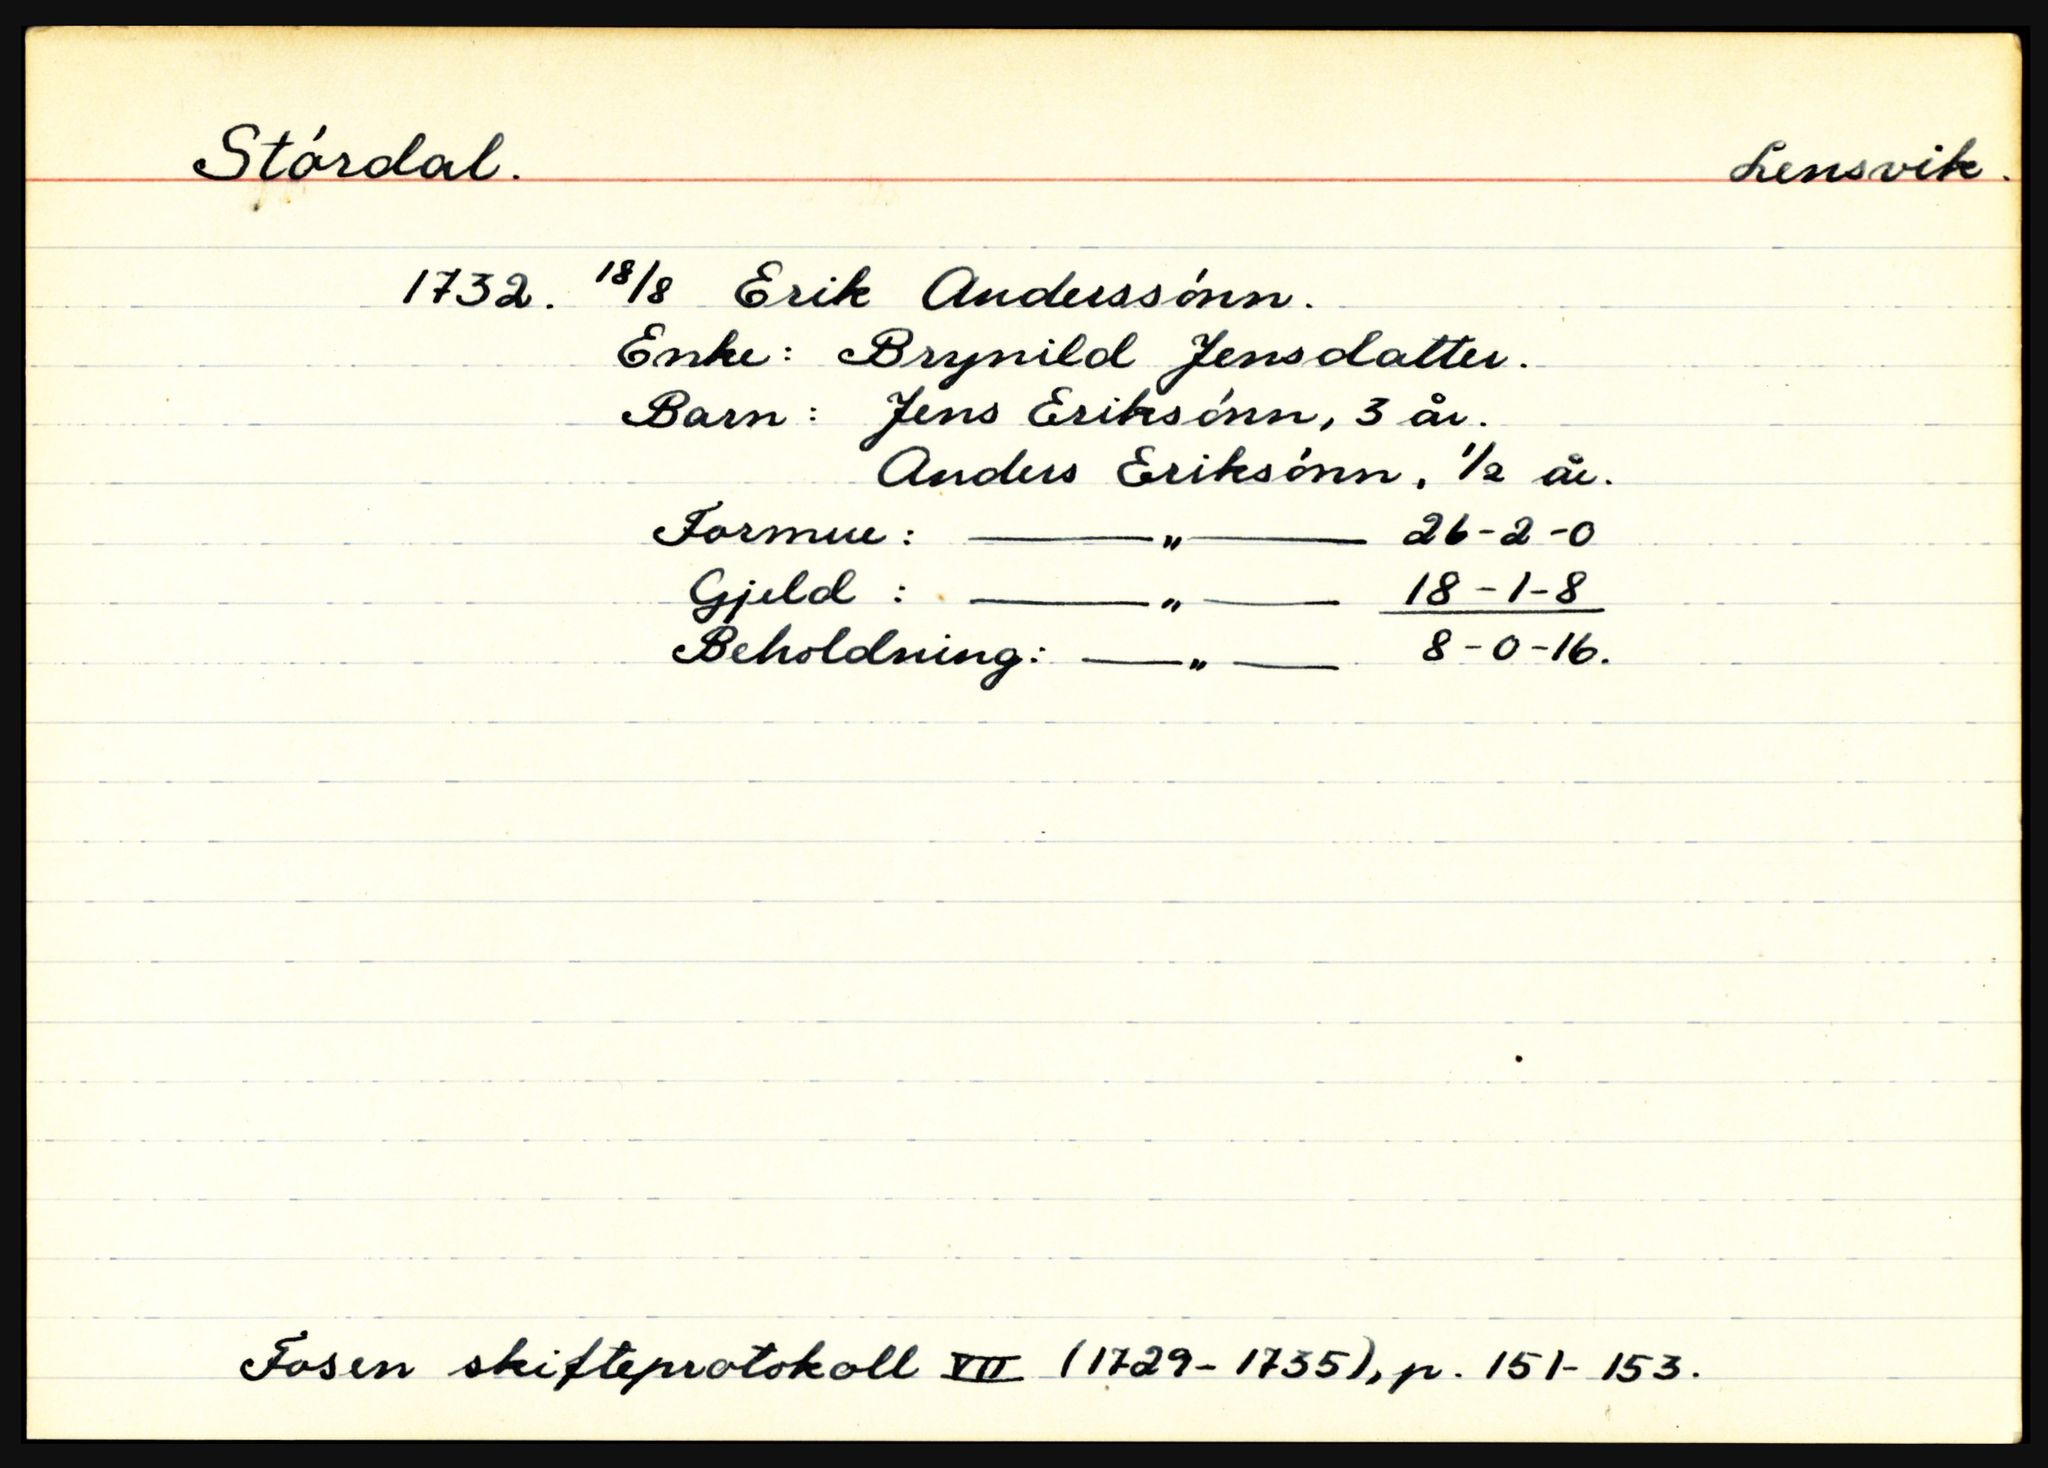 Stórdal. Lensvik.
1732. 18/8 Erik Anderssónn.
Enke: Brynild Jensdatter.
Barn: Jens Eriksónn, 3 år.
Anders Eriksónn, 1/2 år.
Formue: —„— 26-2-0
Gjeld: —„— 18-1-8
Beholdning: —„— 8-0-16.
Fosen skifteprotokoll VII (1729-1735), p. 151-153.